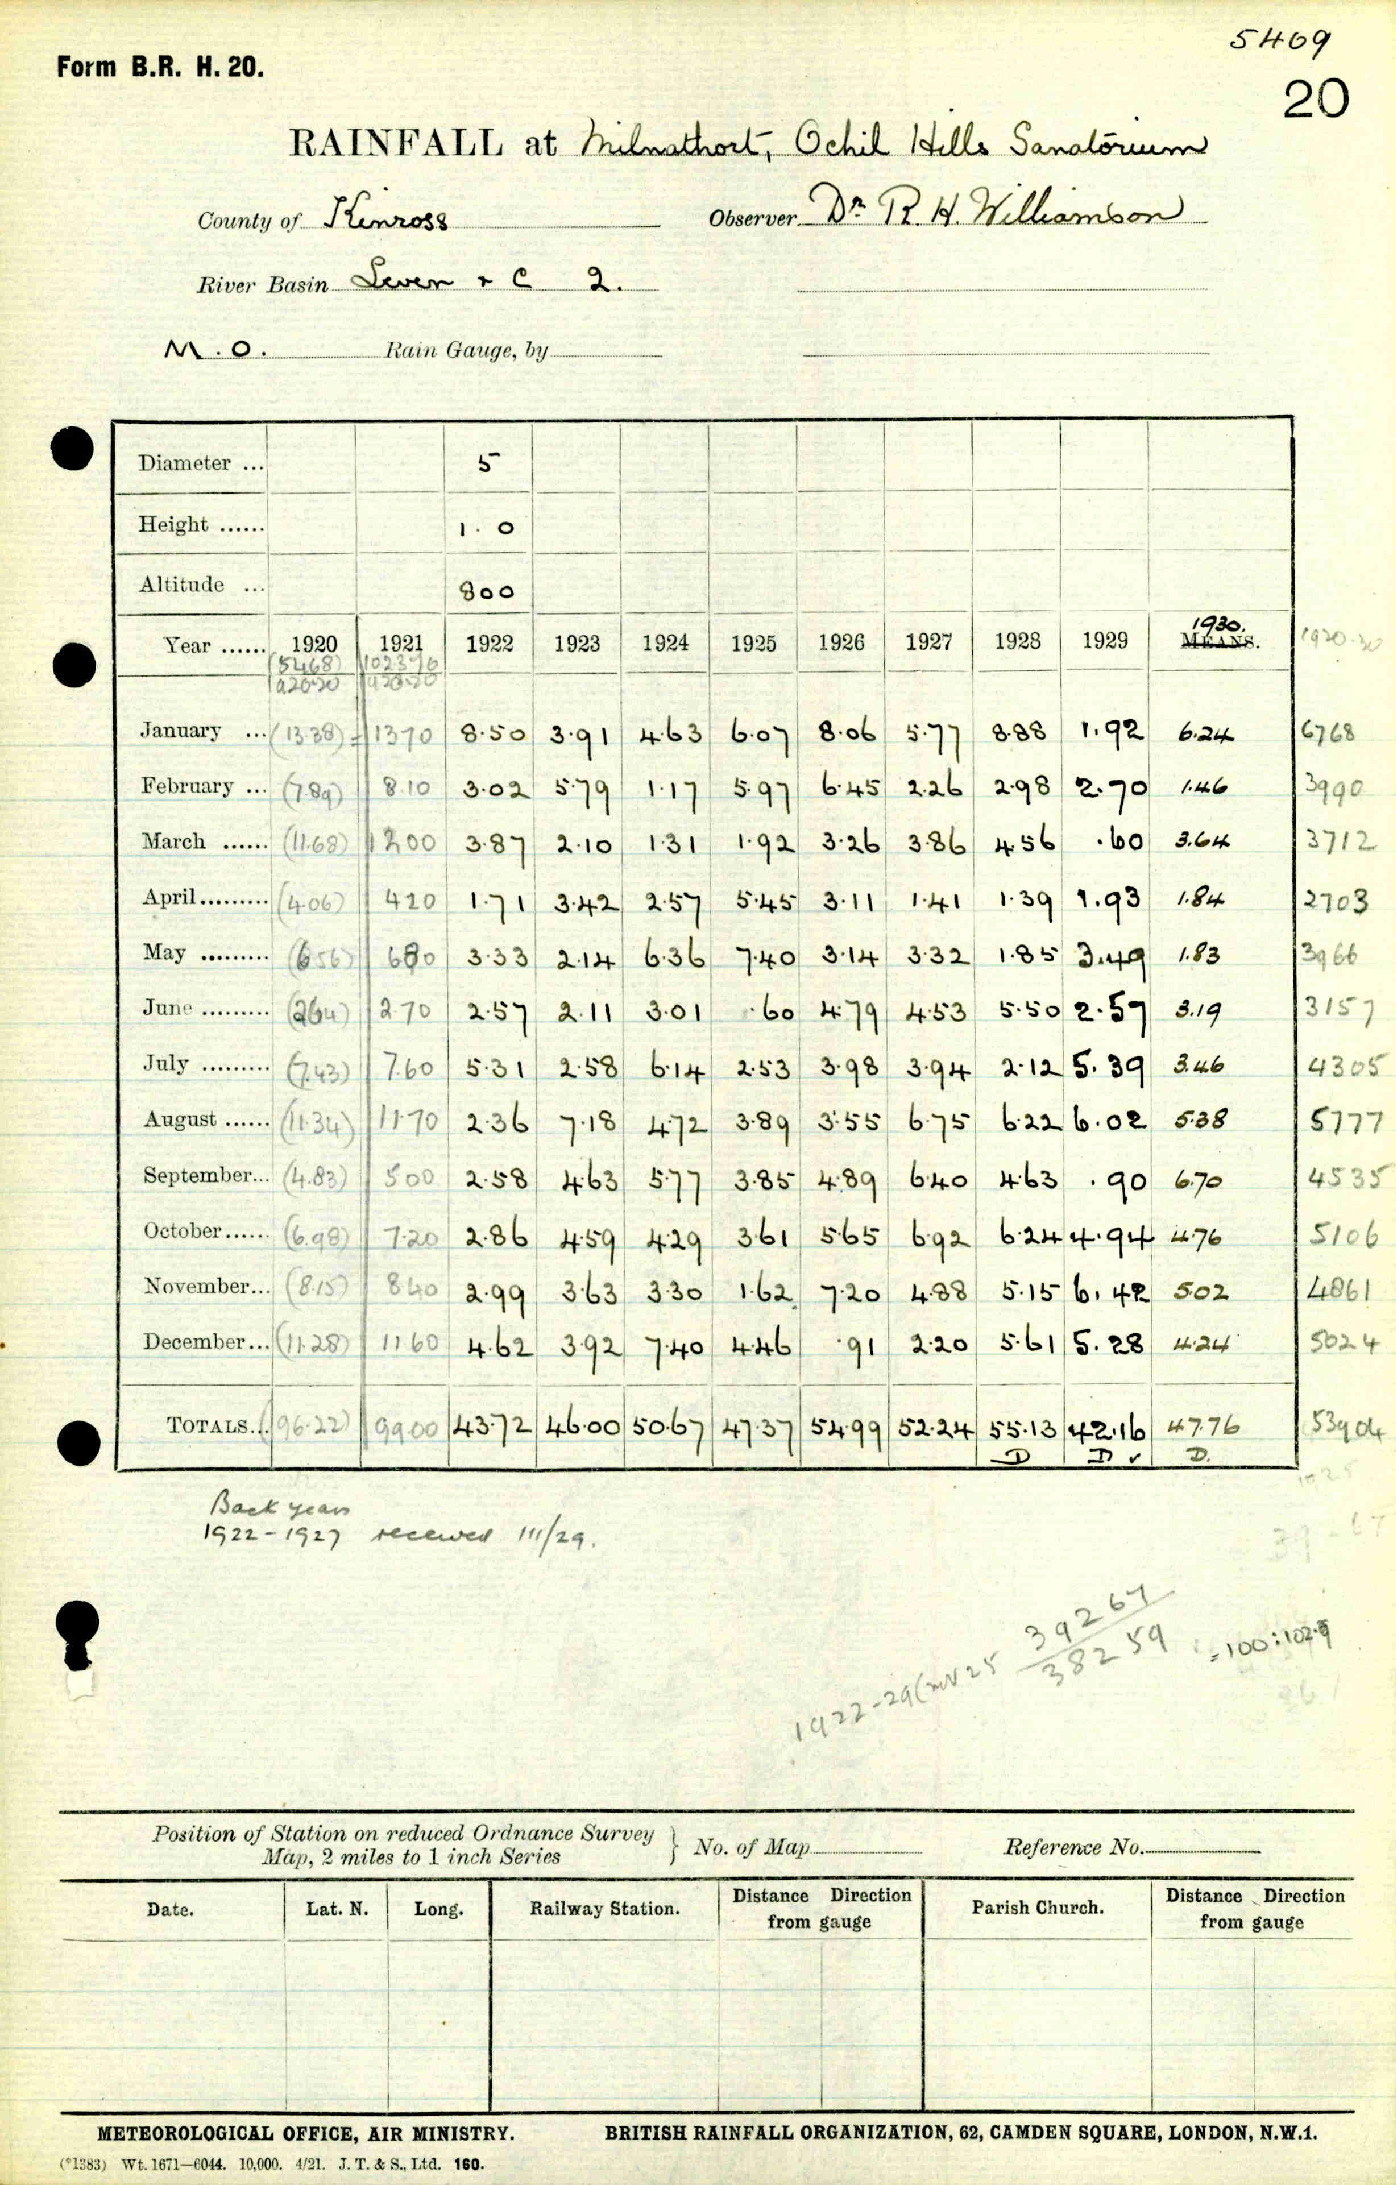 5409
Form B.R. H. 20.
20
RAINFALL at Milnathort, Ochil Hills Sanatorium
County of Kinross Observer Dr R. H. Williamson
River Basin Leven + C 2.
M.O. Rain Gauge, by
Diameter ... 5
Height ...... 1. 0
Altitude ... 800
1930.
Year ...... 1920 1921 1922 1923 1924 1925 1926 1927 1928 1929 MEANS. 1920-30
(5468)
1920-20
January ... (13.38) = 1370 8.50 3.91 4.63 6.07 8.06 5.77 8.88 1.92 6.24 6768
February ... (7.89) 8.10 3.02 5.79 1.17 5.97 6.45 2.26 2.98 2.70 1.46 3990
March ...... (11.68) 1200 3.87 2.10 1.31 1.92 3.26 3.86 4.56 .60 3.64 3712
April......... (4.06) 420 1.71 3.42 2.57 5.45 3.11 1.41 1.39 1.93 1.84 2703
May ......... (6.56) 680 3.33 2.14 6.36 7.40 3.14 3.32 1.85 3.49 1.83 3966
June ......... (2.64) 2.70 2.57 2.11 3.01 .60 4.79 4.53 5.50 2.57 3.19 3157
July ......... (7.43) 7.60 5.31 2.58 6.14 2.53 3.98 3.94 2.12 5.39 3.46 4305
August ...... (11.34) 11.70 2.36 7.18 4.72 3.89 3.55 6.75 6.22 6.02 5.38 5777
September... (4.83) 500 2.58 4.63 5.77 3.85 4.89 6.40 4.63 .90 6.70 4535
October...... (6.98) 7.20 2.86 4.59 4.29 3.61 5.65 6.92 6.24 4.94 4.76 5106
November... (8.15) 840 2.99 3.63 3.30 1.62 7.20 4.88 5.15 6.42 5.02 4861
December... (11.28) 11 60 4.62 3.92 7.40 4.46 .91 2.20 5.61 5.28 4.24 5024
TOTALS... (96.22) 9900 43.72 46.00 50.67 47.37 54.99 52.24 55.13 42.16 47.76 53904
D D ✓ D.
Back years
1922-1927 received III/29.
39267
1922-29 38259 = 100:102.9
Position of Station on reduced Ordnance Survey
Map, 2 miles to 1 inch Series } No. of Map Reference No.
Date. Lat. N. Long. Railway Station. Distance Direction from gauge Parish Church. Distance Direction from gauge
METEOROLOGICAL OFFICE, AIR MINISTRY. BRITISH RAINFALL ORGANIZATION, 62, CAMDEN SQUARE, LONDON, N.W.1.
(*1383) Wt. 1671—6044. 10,000. 4/21. J. T. & S., Ltd. 160.